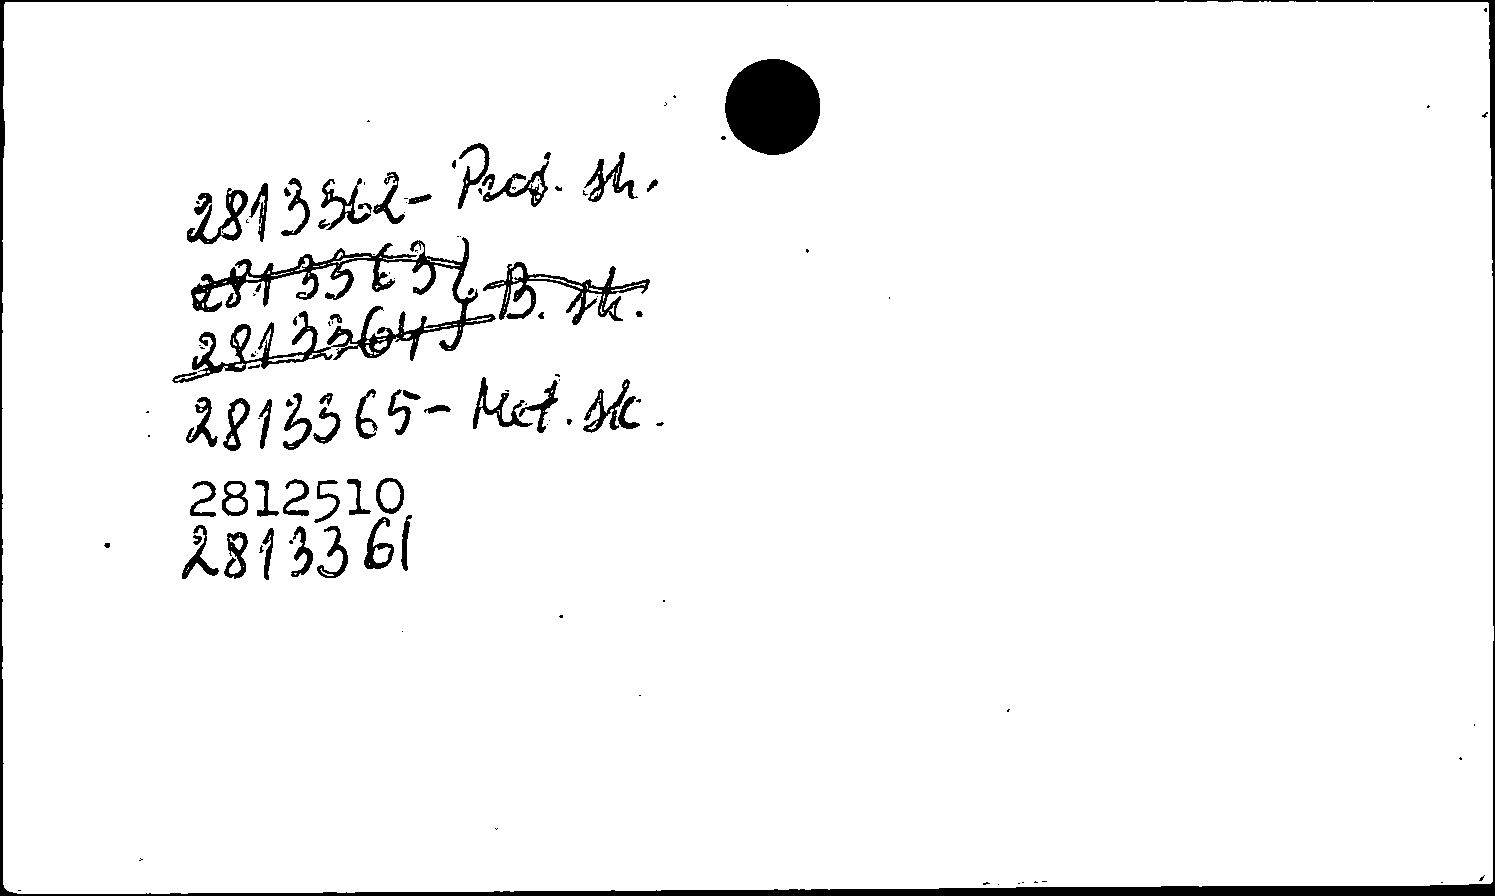 2813362 - Prof. sk.
2813363
2813364 } B. sk.
2813365 - Met. sk.
2812510
2813361